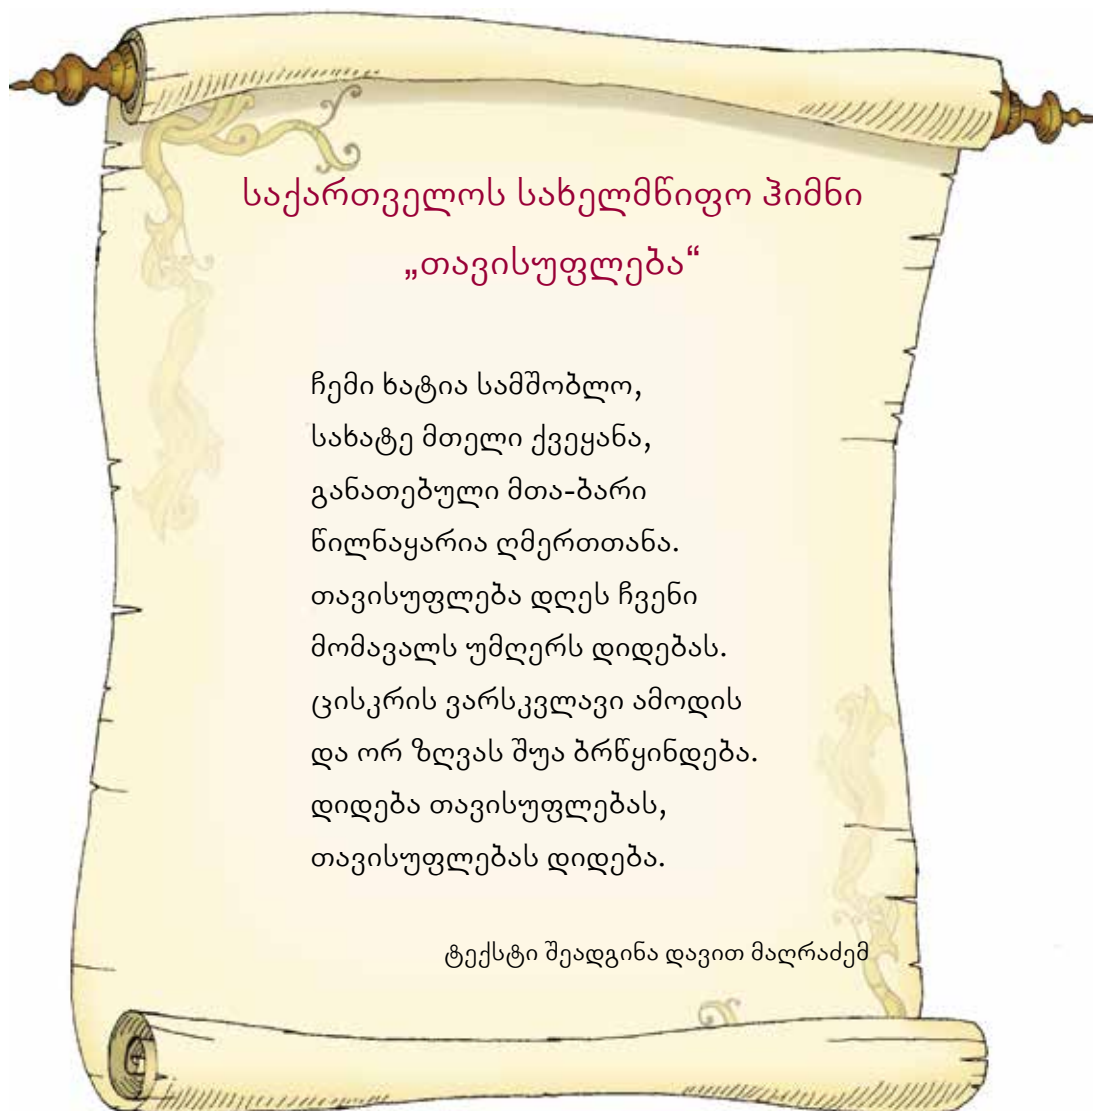 საქართველოს სახელმწიფო ჰიმნი
„თავისუფლება“
ჩემი ხატია სამშობლო,
სახატე მთელი ქვეყანა,
განათებული მთა-ბარი
წილნაყარია ღმერთთანა.
თავისუფლება დღეს ჩვენი
მომავალს უმღერს დიდებას.
ცისკრის ვარსკვლავი ამოდის
და ორ ზღვას შუა ბრწყინდება.
დიდება თავისუფლებას,
თავისუფლებას დიდება.
ტექსტი შეადგინა დავით მაღრაძემ